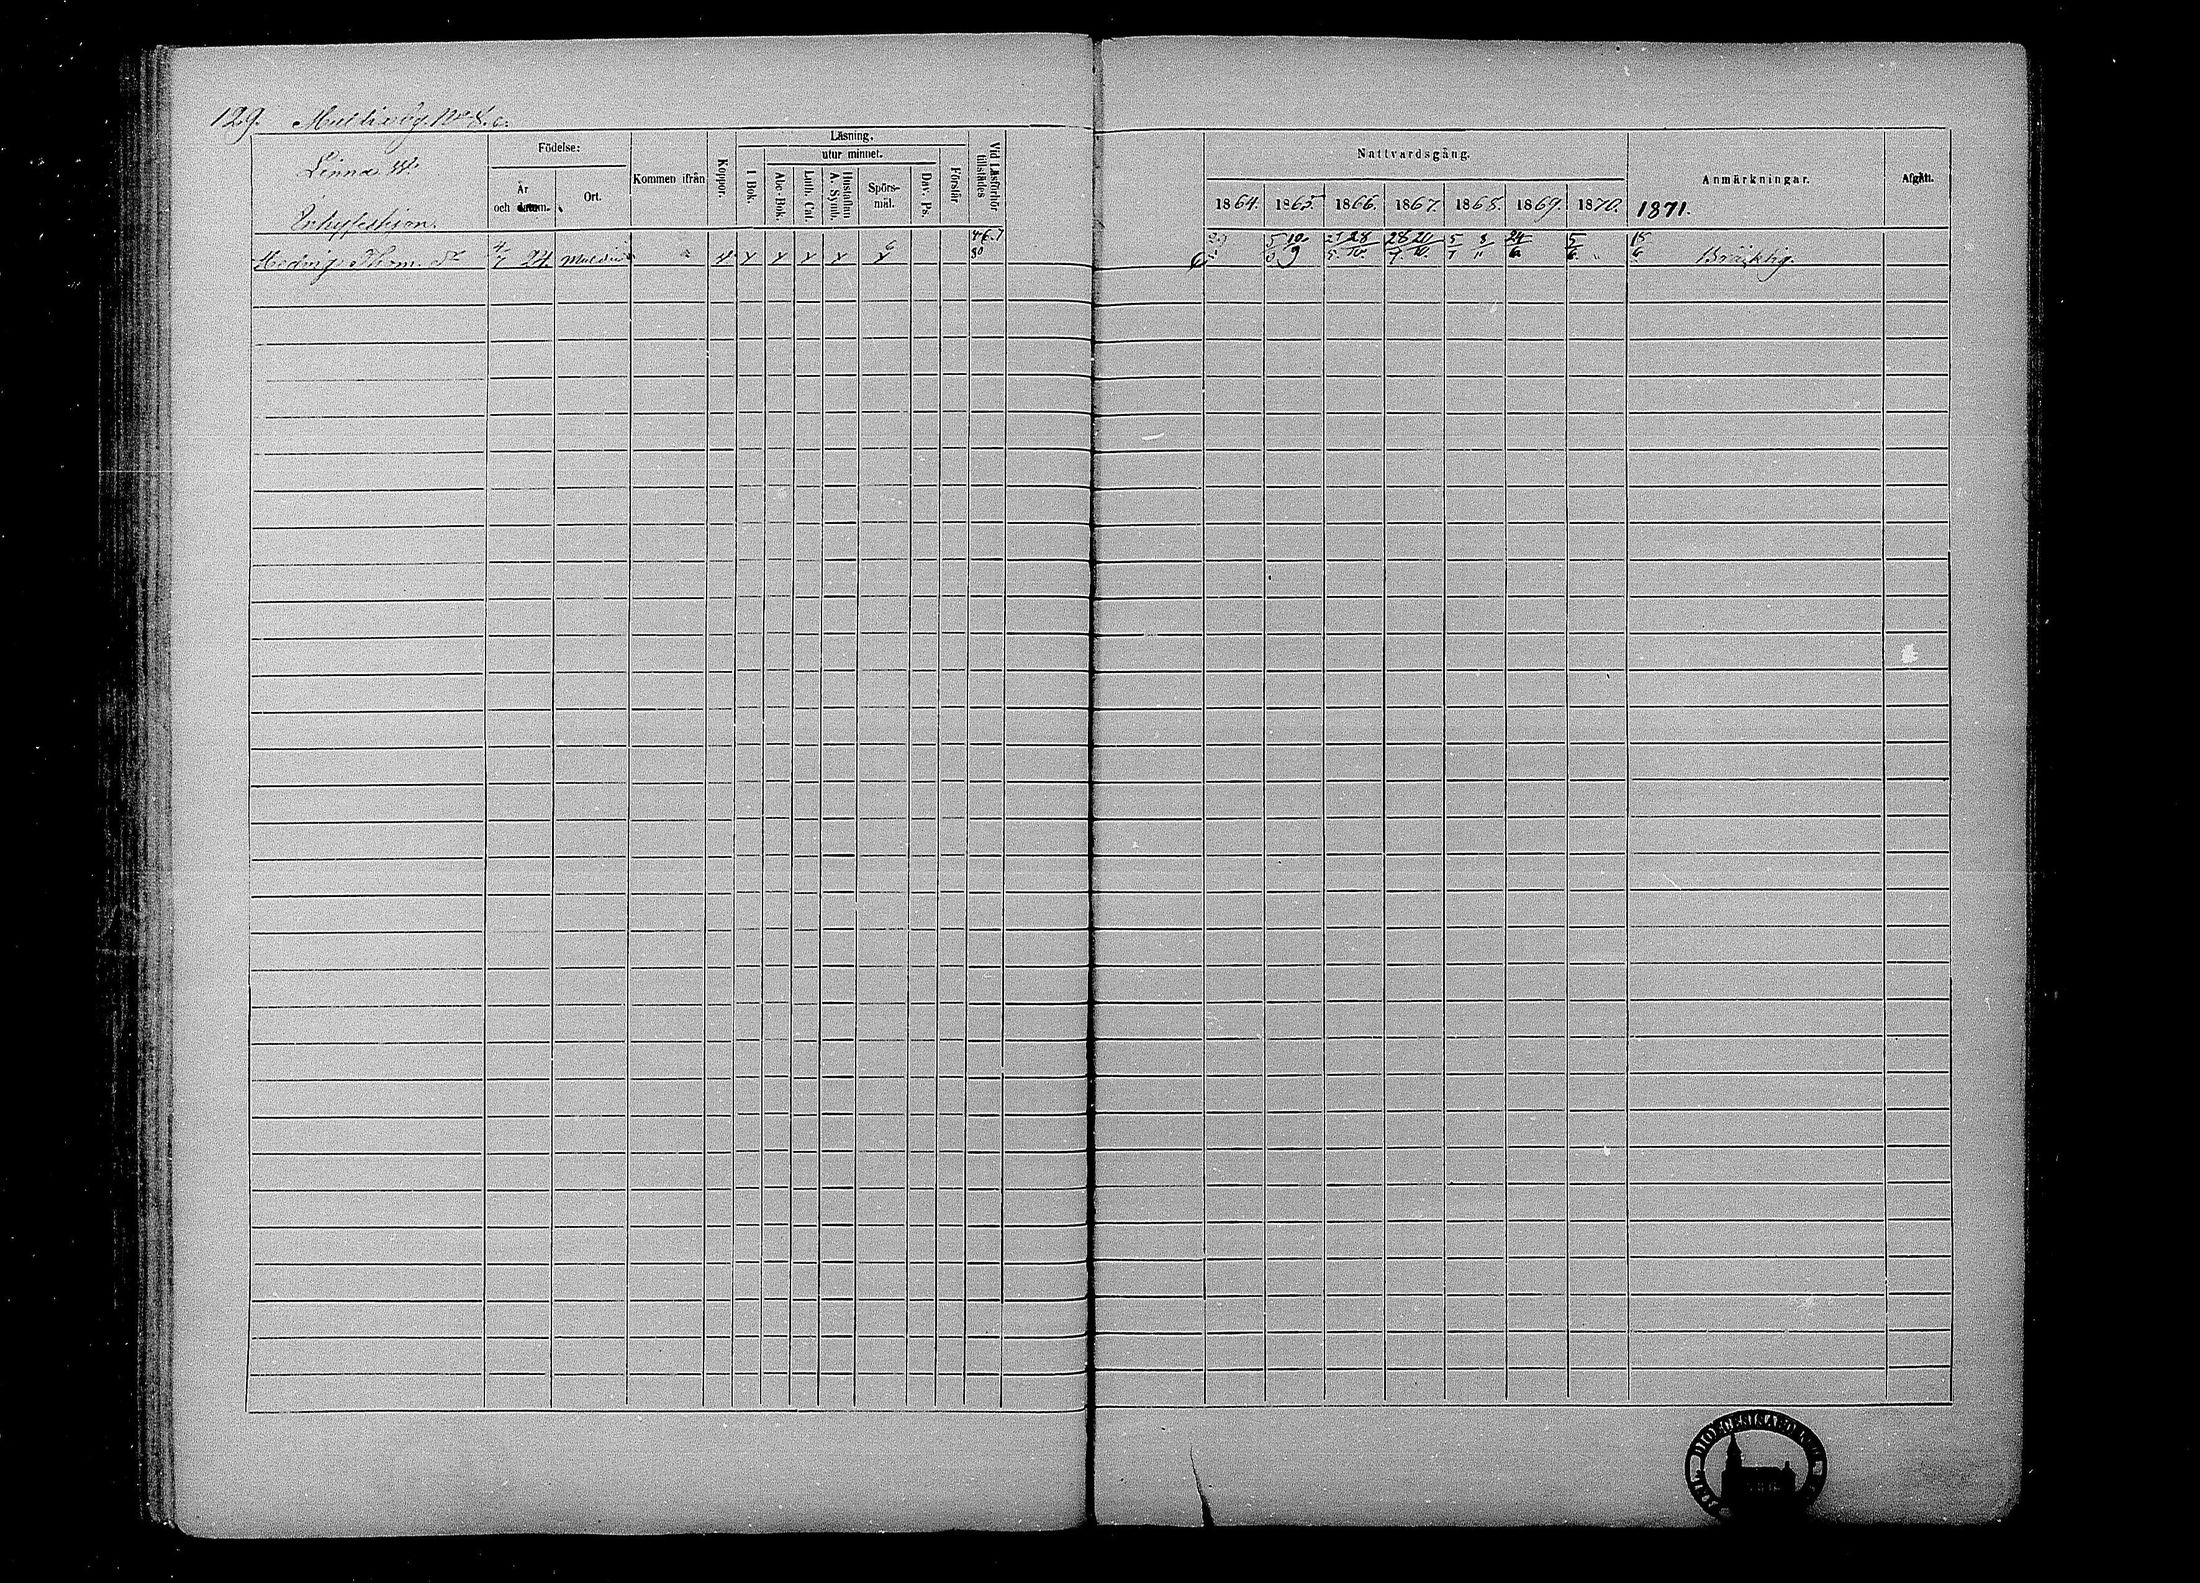 129. Multivby. No 8. c.
Linnas H.
Inhyseshion.
Födelse:
År och datum.
Ort.
Kommen ifrån
Koppor.
Läsning.
utur minnet.
I Bok.
Abc-Bok.
Luth. Cat.
Hustaflan A. Symb.
Spörs-mål.
Dav. Ps.
Förstår
Vid Läsförhör tillstädes
Nattvardsgång.
1864. 1865. 1866. 1867. 1868. 1869. 1870. 1871.
Anmärkningar.
Afgått.
Hedvig Thom. dr 4/7 24 x x x x 6 x 4 6. 7 80
5 10/9 28/10. 28/7. 20/10. 5/7 8/11 24/6. 5/6. 15/6 Bräcklig.